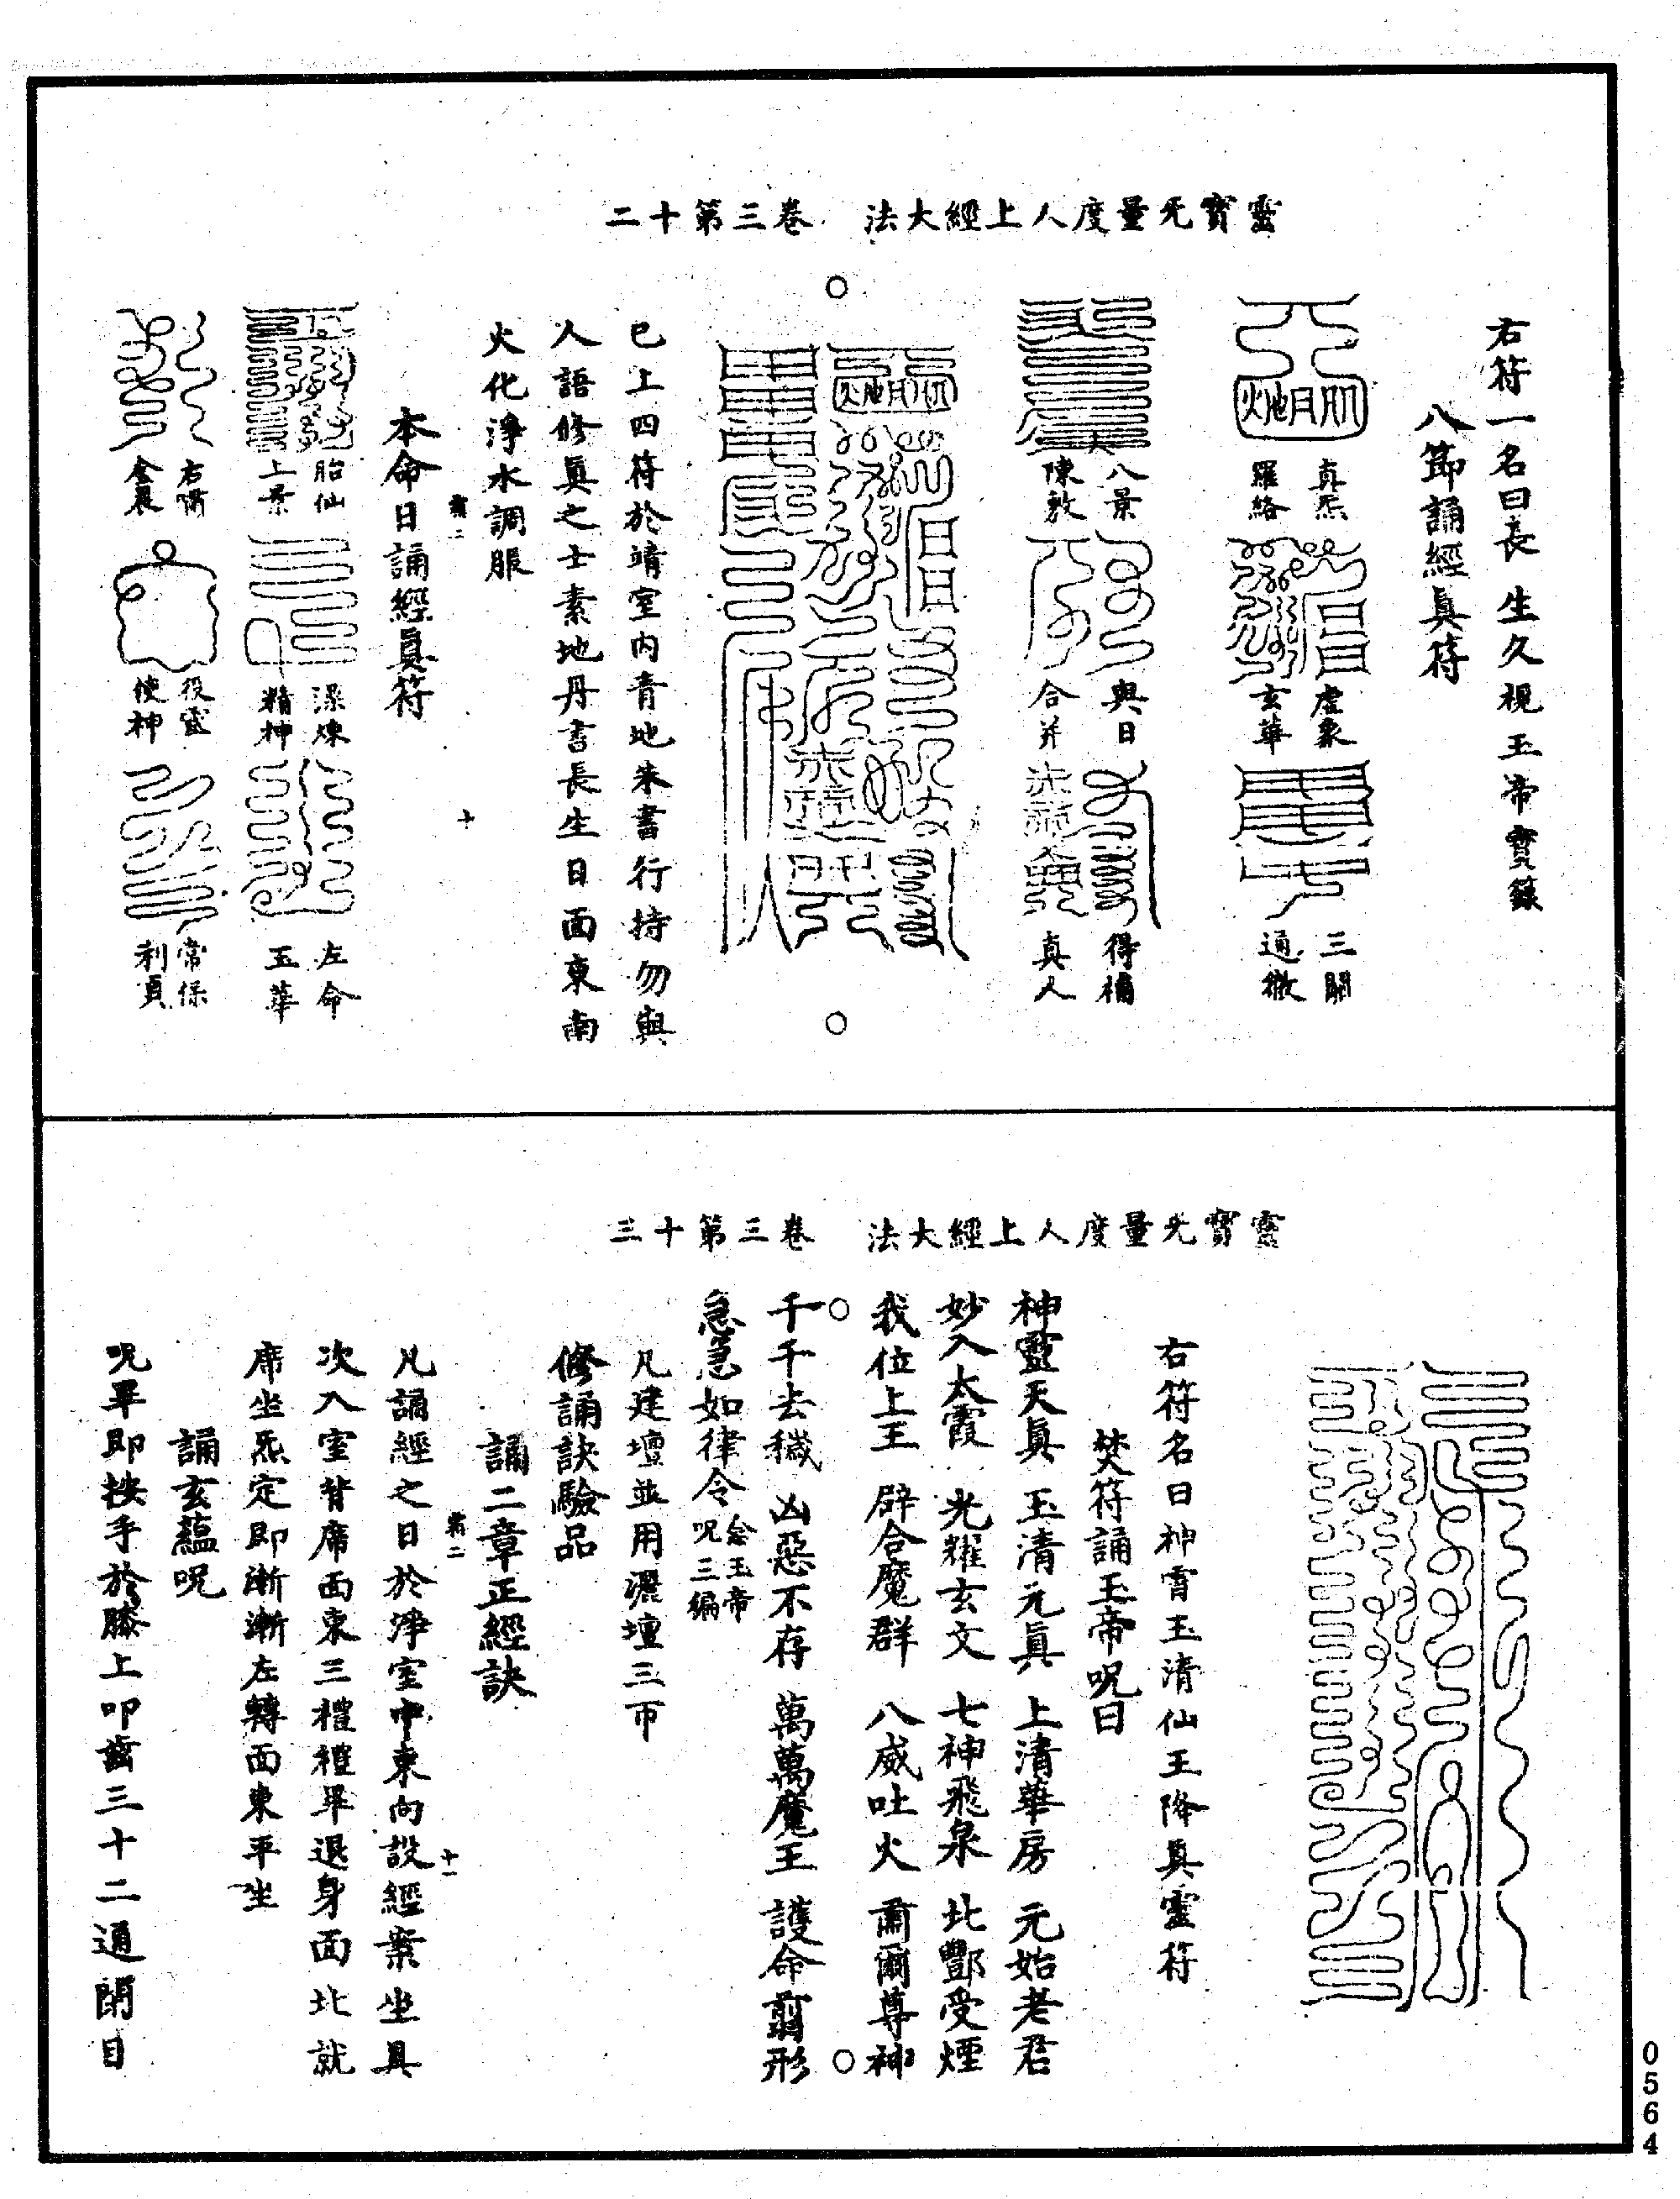 靈寳无量度人上經大法　卷三第十二
右符一名曰長生久視玉帝寳籙
八節誦經真符
真炁羅絡
虛象玄華
三關通微
八景陳敷
與日合并
得補真人
已上四符於靖室内青地朱書行持勿與
人語修真之士素地丹書長生日面東南
火化淨水調服
二
十
本命日誦經真符
胎仙上景
澡煉精神
左命玉華
右嘯金晨
役靈使神
常保利貞
靈寳无量度人上經大法　卷三第十三
右符名曰神霄玉清仙王降真靈符
焚符誦玉帝呪曰
神靈天真　玉清元真　上清華房　元始老君
妙入太霞　光耀玄文　七神飛泉　北酆受煙
我位上王　辟合魔群　八威吐火　爾爾尊神
千千去穢　凶惡不存　萬萬魔王　護命翦形
急急如律令念玉帝呪三編
凡建壇並用灑壇三帀
修誦訣驗品
誦二章正經訣
二
十一
凡誦經之日於淨室中東向設經案坐具
次入室背席面東三禮禮畢退身面北就
席坐炁定即漸漸左轉面東平坐
誦玄蘊呪
呪畢即按手於膝上叩齒三十二通閉目
0564